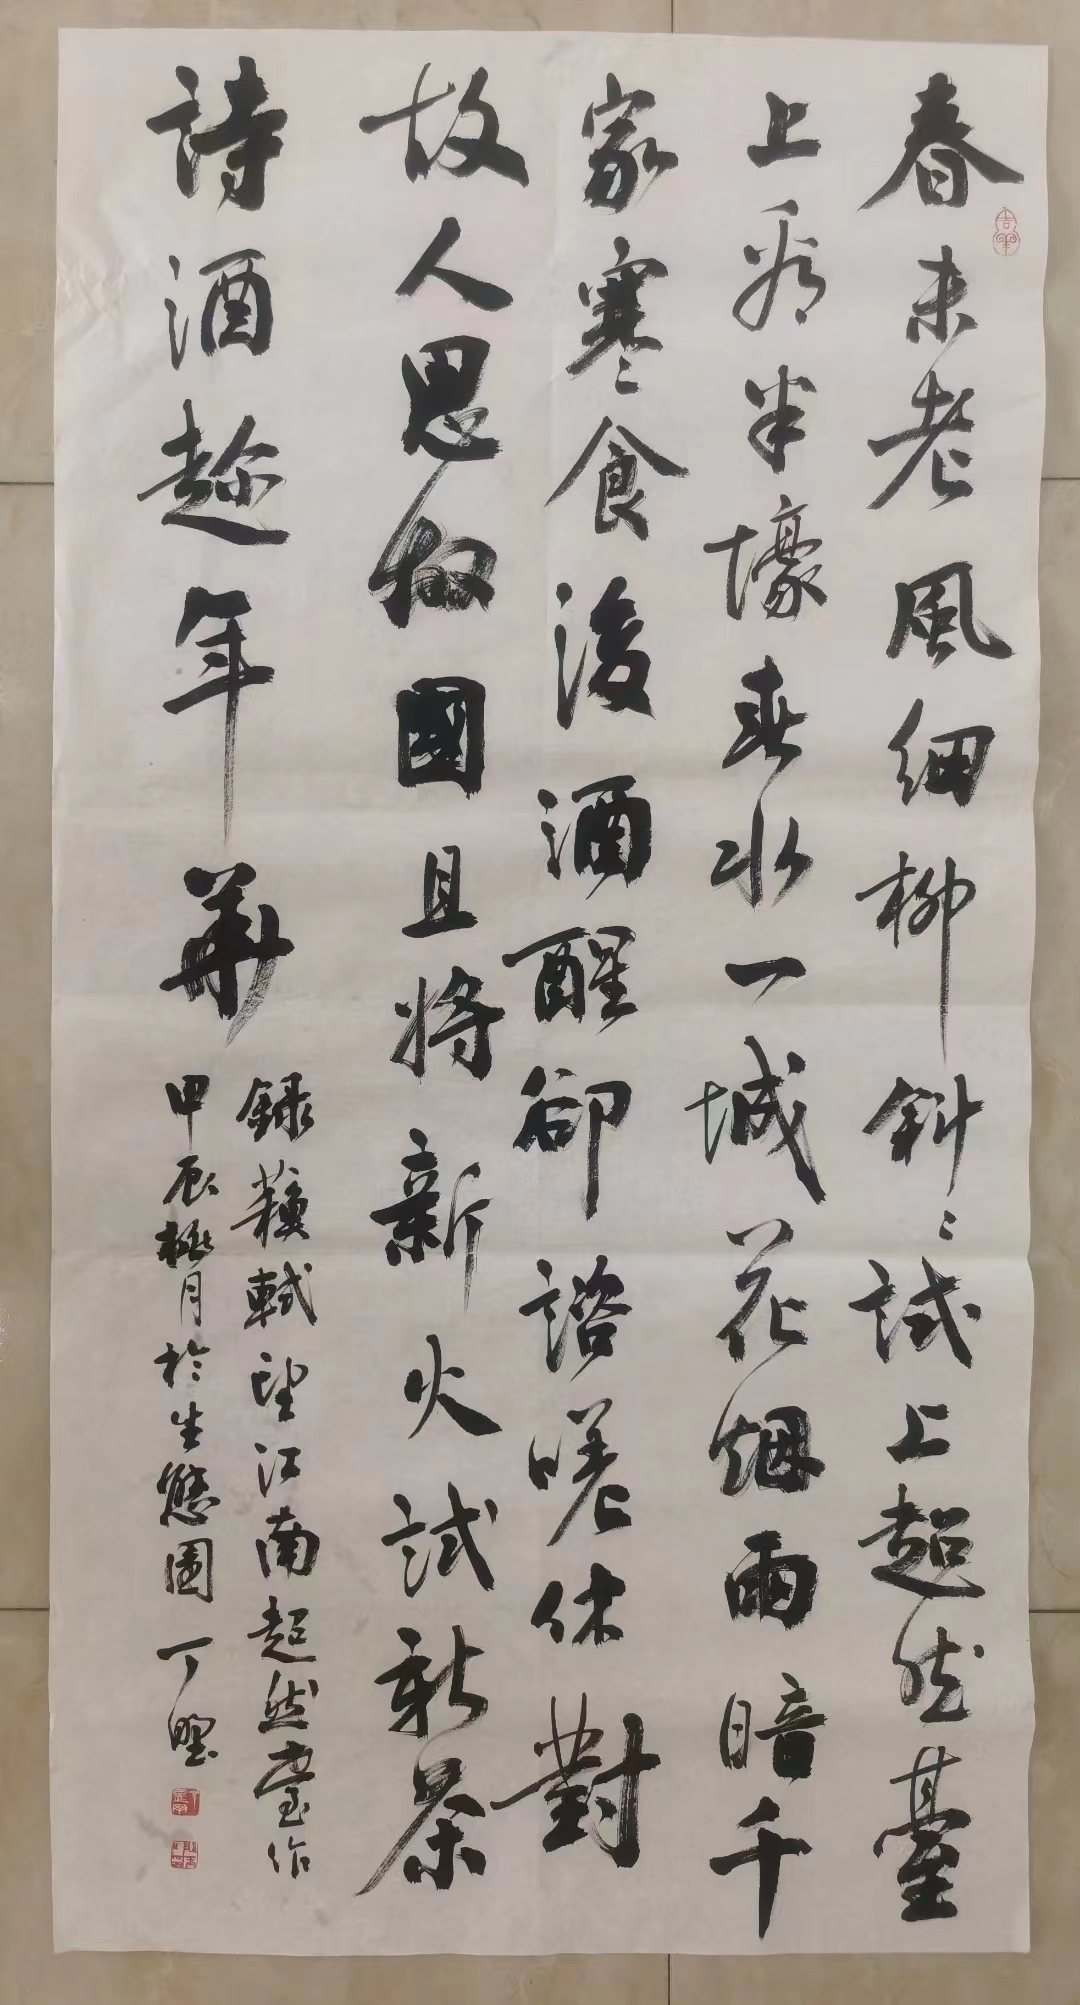 春未老風細柳斜〻試上超然臺
上看半壕春水一城花烟雨暗千
家寒食後酒醒卻諮嗟休對
故人思故國且將新火試新茶
詩酒趁年華
錄蘇軾望江南超然臺作
甲辰極月於生態園 丁